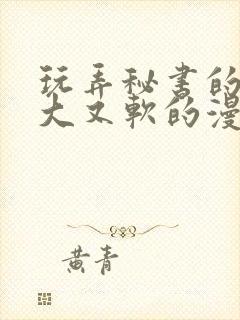 玩弄秘书的
大又軟的漫
黄青